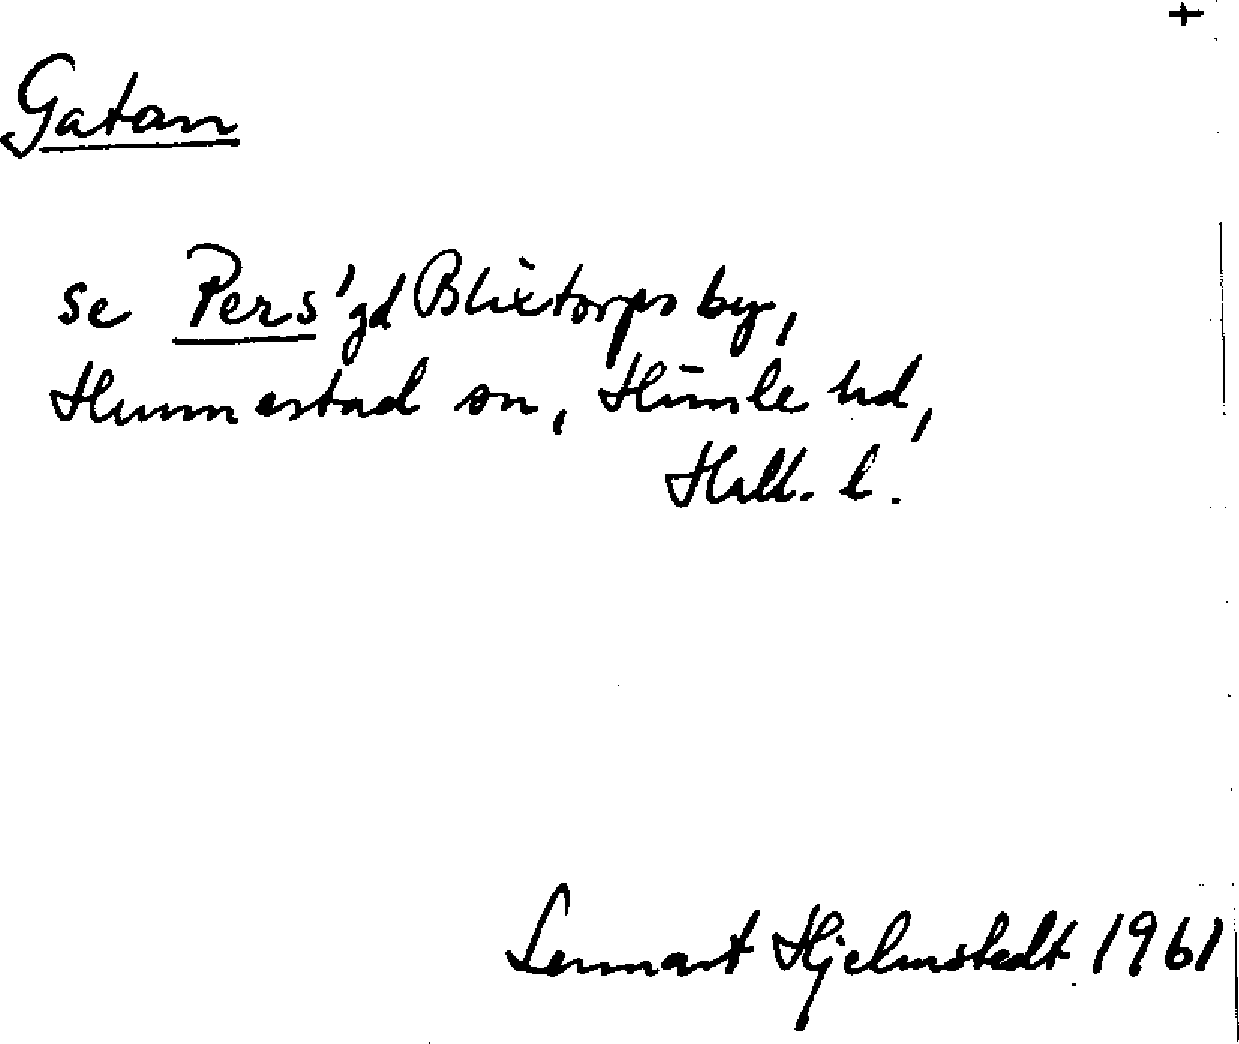 +
Gatan
se Pers' gd Blixtorps by,
Hunnestad sn, Himle hd,
Hall. l.
Lennart Hjelmstedt 1961